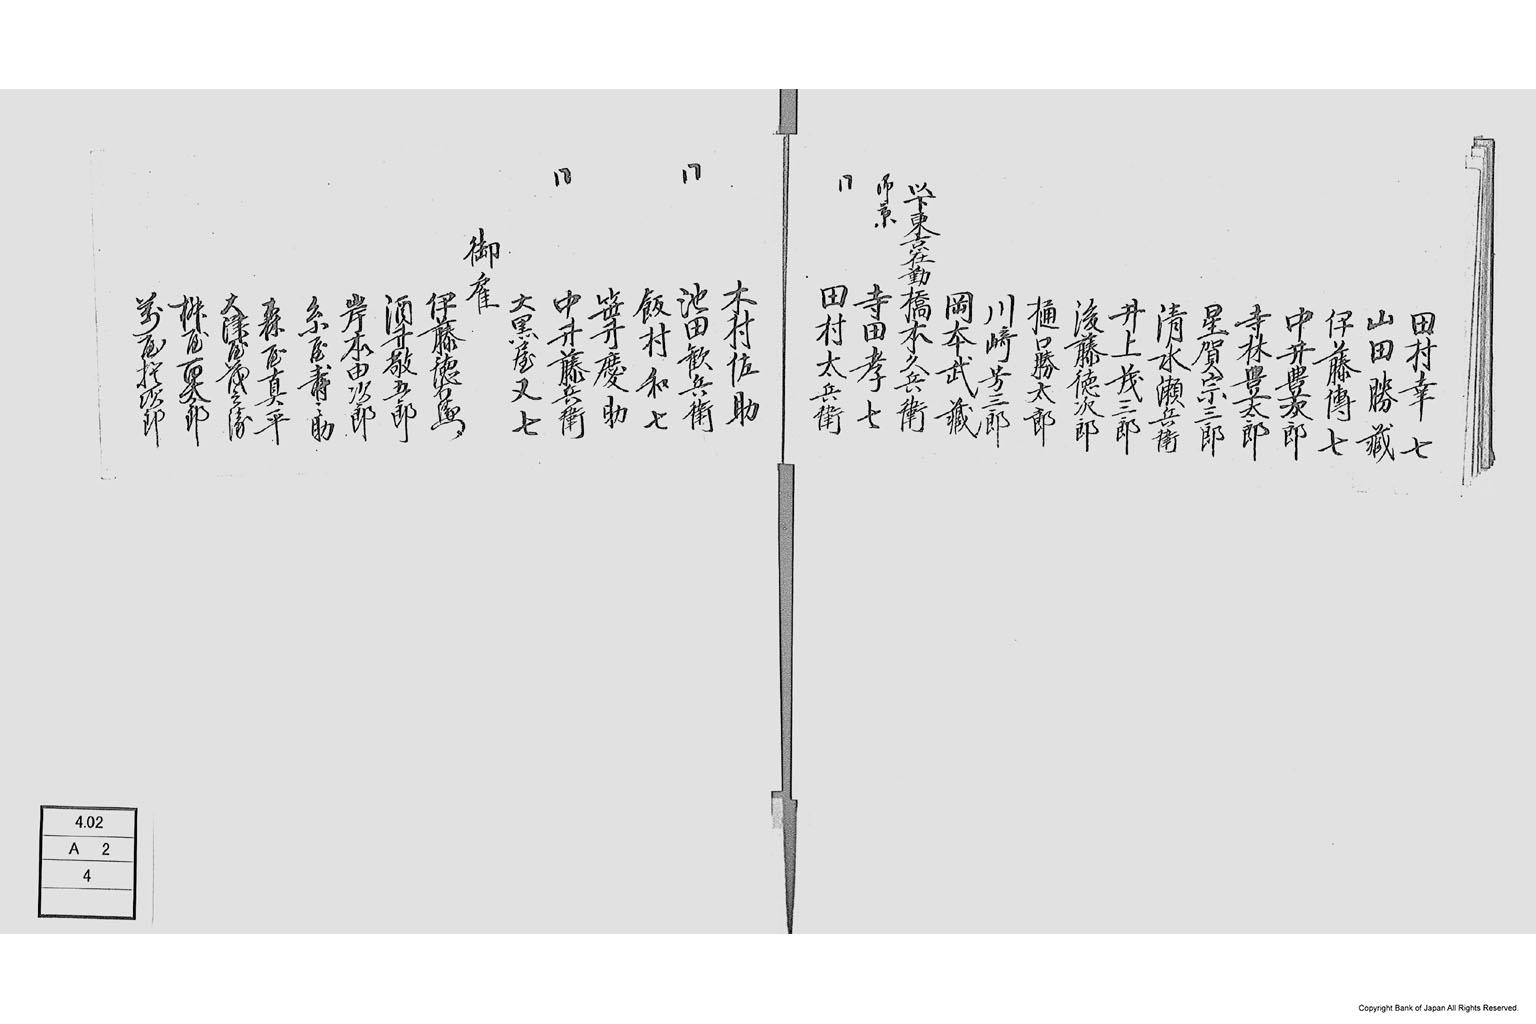 田村幸七
山田勝藏
伊藤傳七
中井豊次郎
寺林豊太郎
星賀宗三郎
清水瀬兵衛
井上茂三郎
後藤徳次郎
樋口勝太郎
川﨑芳三郎
岡本武藏
以下東京在勤
橋本久兵衛
帰京
寺田孝七
田村太兵衛
木村佐助
池田歓兵衛
飯村和七
笹井慶助
中井藤兵衛
大黒屋又七
御雇
伊藤徳
酒井敬五郎
岸本由次郎
糸屋壽之助
森屋真平
大津屋茂兵衛
桝屋
萬屋
4.02
A 2
4
Copyright Bank of Japan All Rights Reserved.